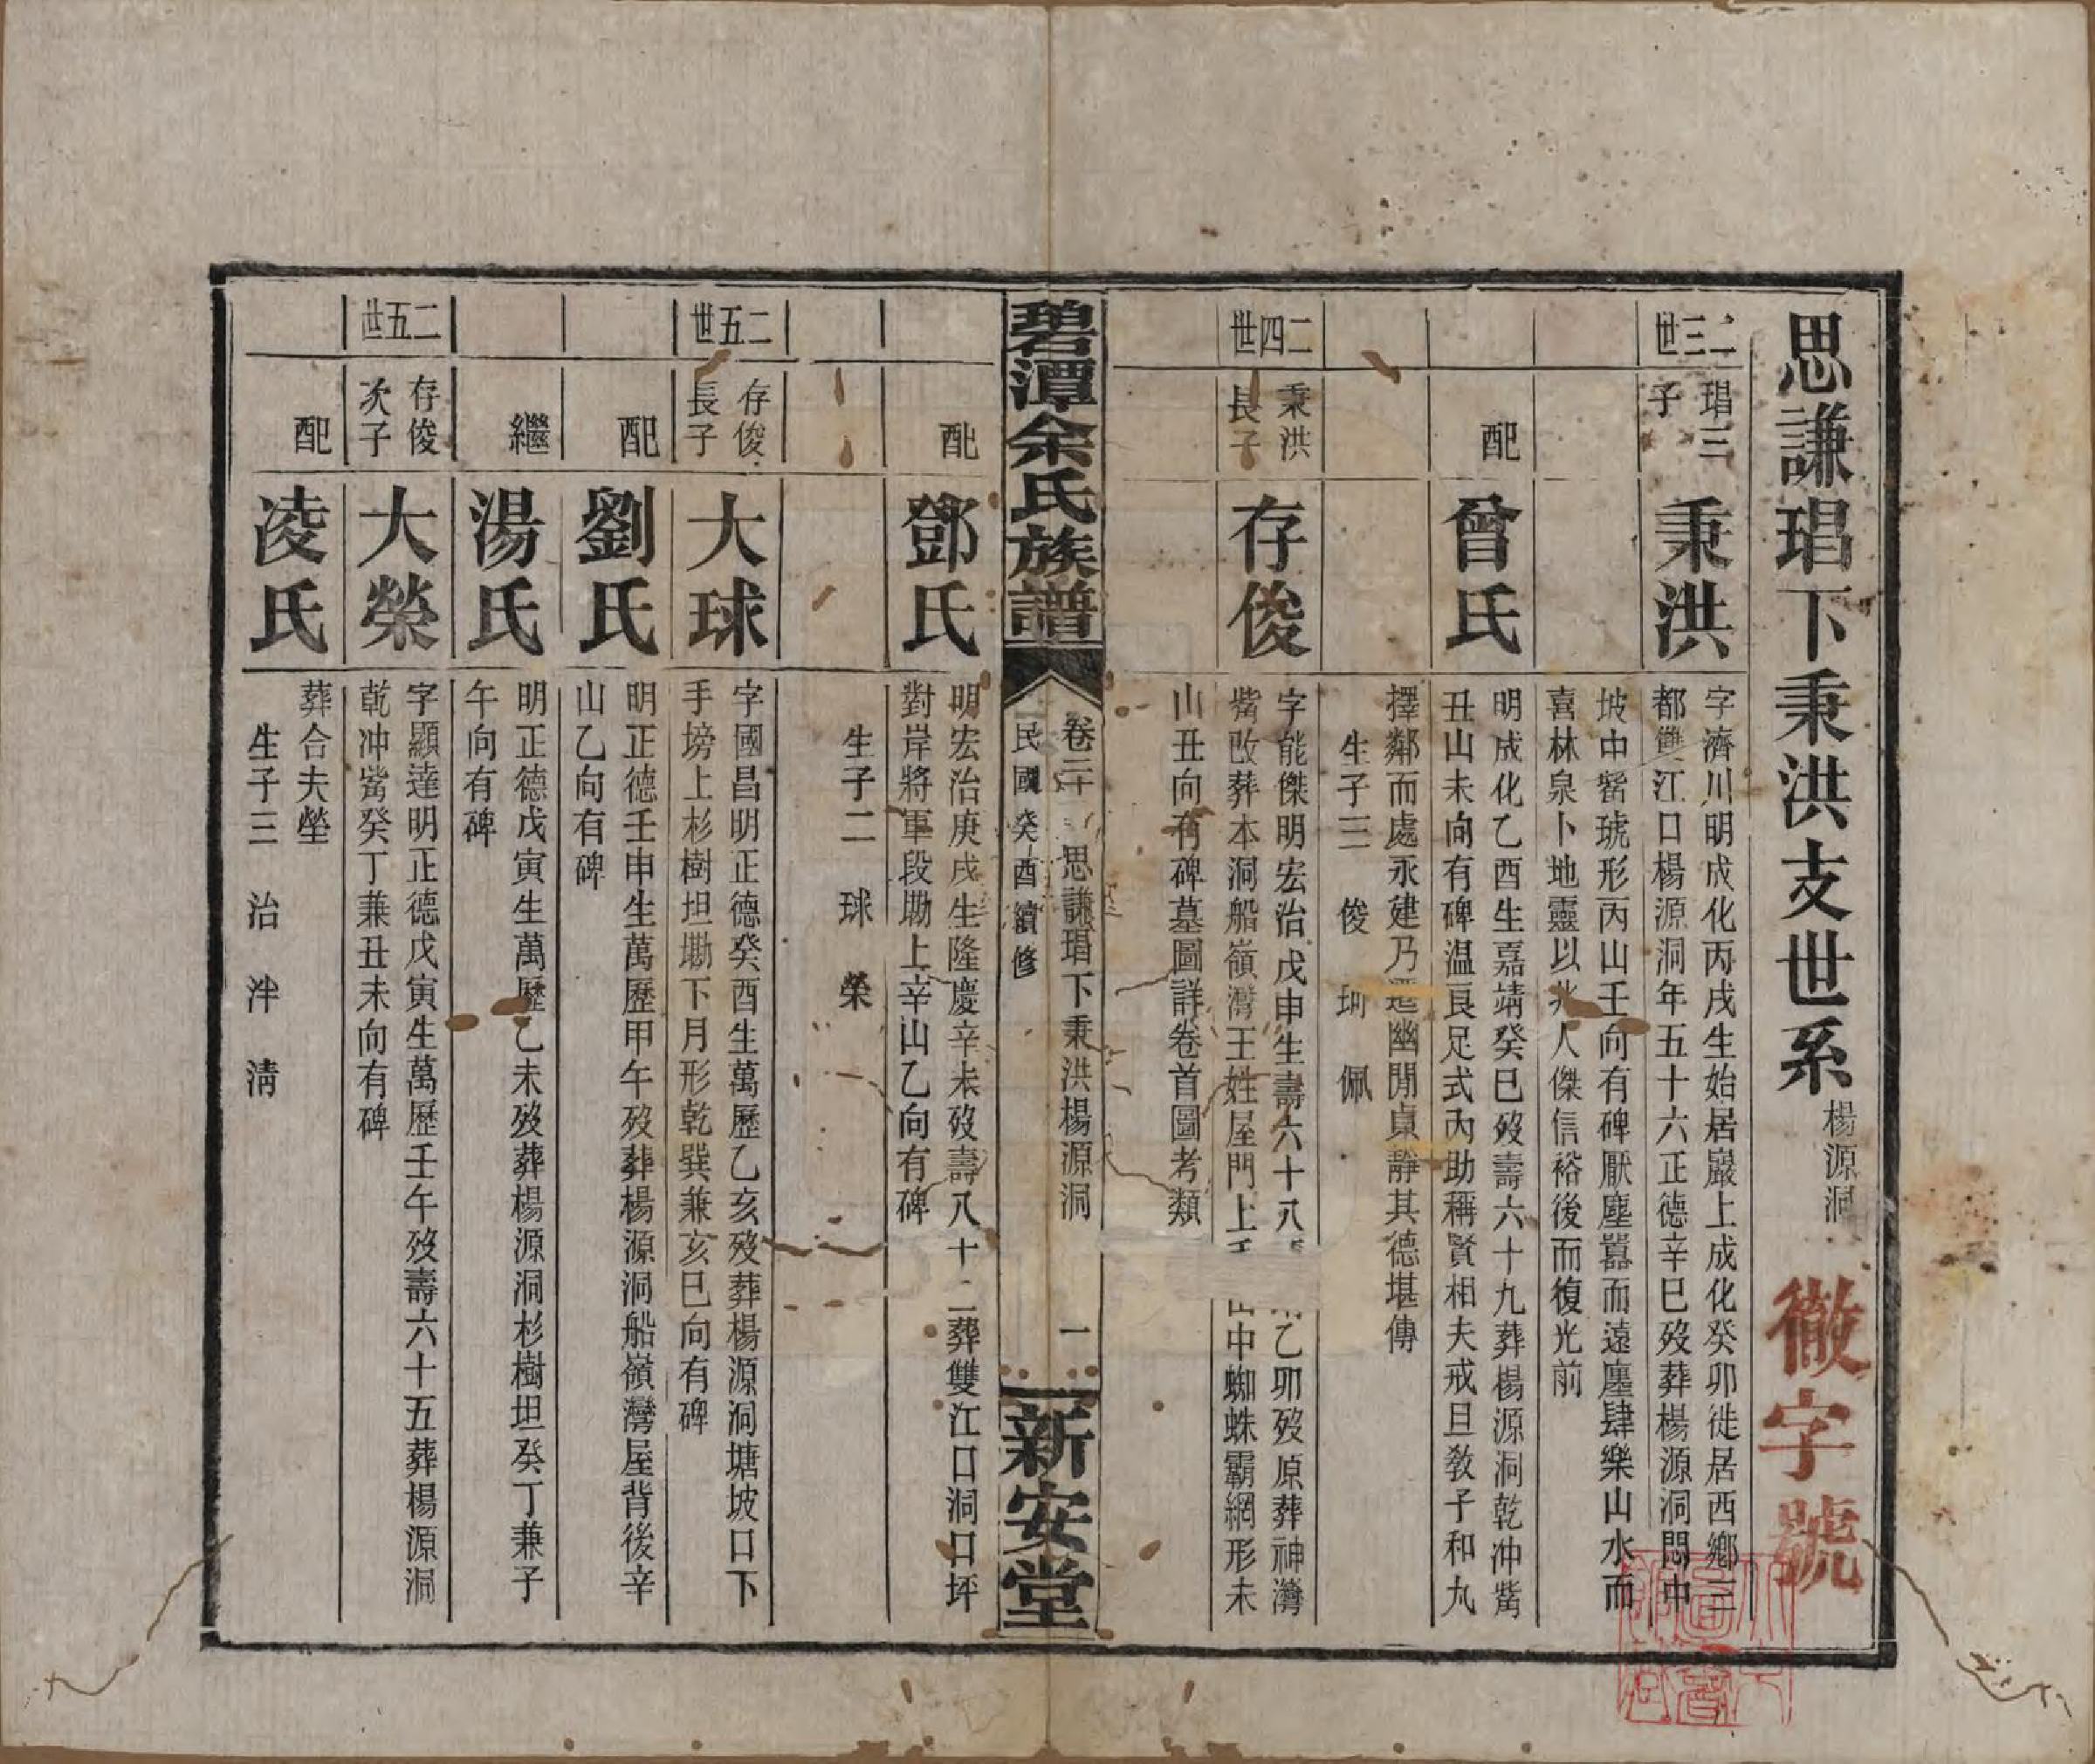 思謙琩下秉洪支世系 楊源洞 徹字號
二三世
琩三
子
秉洪
字濟川明成化丙戌生始居巖上成化癸卯徙居西鄉三
都雙江口楊源洞年五十六正德辛巳歿葬楊源洞悶中
坡中嘴琥形丙山壬向有碑厭塵囂而遠廛肆樂山水而
喜林泉卜地靈以兆人傑信裕後而復光前
配
曾氏
明成化乙酉生嘉靖癸巳歿壽六十九葬楊源洞乾冲嘴
丑山未向有碑温良足式內助稱賢相夫戒旦敎子和丸
擇鄰而處永建乃遷幽閒貞靜其德堪傳
生子三 俊 珂 佩
二四世
秉洪
長子
存俊
字能傑明宏治戊申生壽六十八 乙卯歿原葬神灣
嘴改葬本洞船嶺灣王姓屋門上 山中蜘蛛霸網形未
山丑向有碑墓圖詳卷首圖考類
碧潭余氏族譜
卷三十 思謙琩下秉洪楊源洞 一
民國癸酉續修
新安堂
配
鄧氏
明宏治庚戌生隆慶辛未歿壽八十二葬雙江口洞口坪
對岸將軍段勘上辛山乙向有碑
生子二 球 榮
二五世
存俊
長子
大球
字國昌明正德癸酉生萬歷乙亥歿葬楊源洞塘坡口下
手塝上杉樹坦勘下月形乾巽兼亥巳向有碑
配
劉氏
明正德壬申生萬歷甲午歿葬楊源洞船嶺灣屋背後辛
山乙向有碑
繼
湯氏
明正德戊寅生萬歷乙未歿葬楊源洞杉樹坦癸丁兼子
午向有碑
二五世
存俊
次子
大榮
字顯達明正德戊寅生萬歷壬午歿壽六十五葬楊源洞
乾冲嘴癸丁兼丑未向有碑
配
凌氏
葬合夫塋
生子三 治 泮 淸